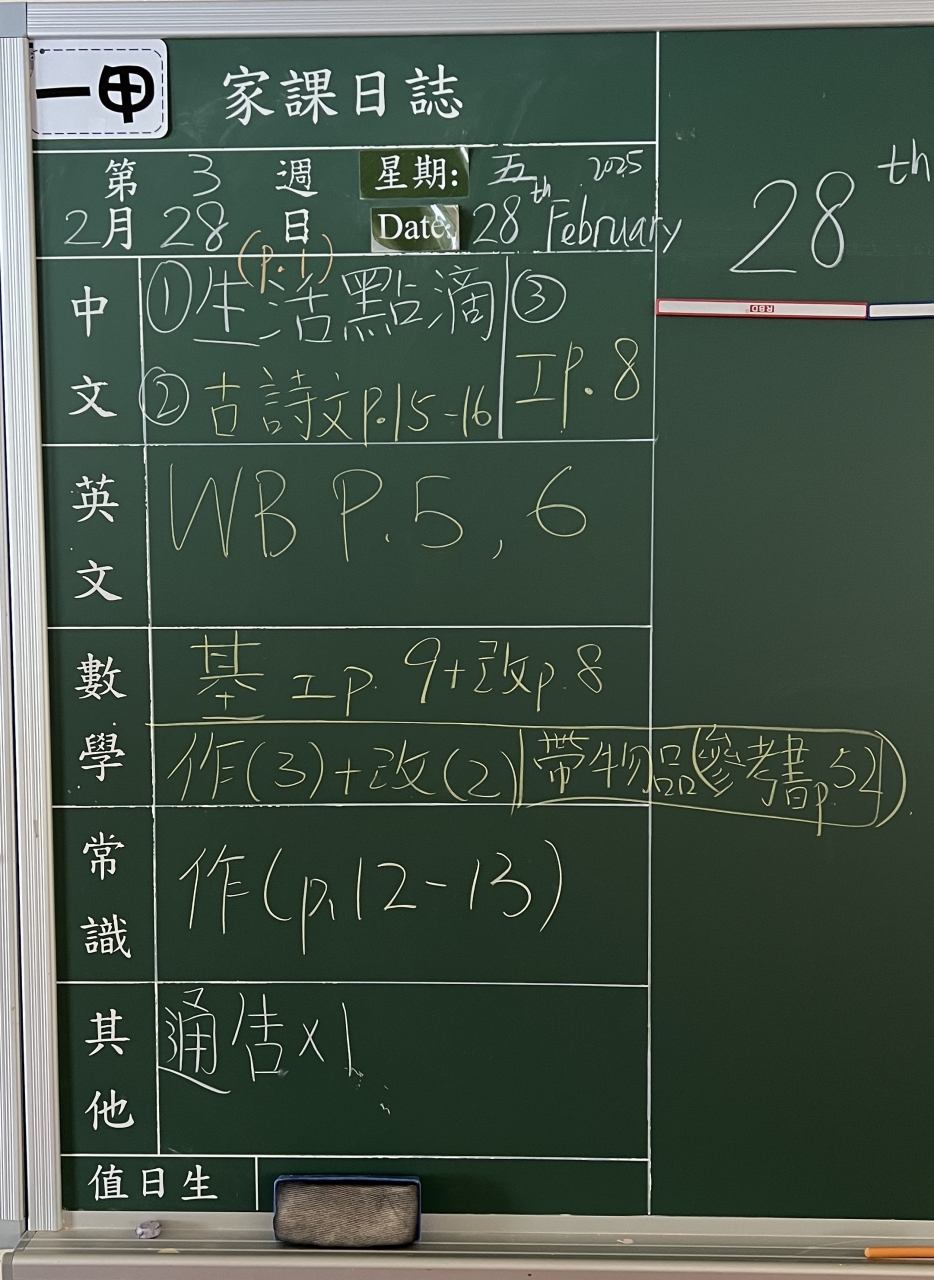 一甲
家課日誌
第 3 週 星期: 五 2025
2月 28 日 Date: 28th February
28th
中文
① 生活點滴 (p.1)
② 古詩文p.15-16
③ 工p.8
英文
WB P.5, 6
數學
基 工p. 9+改p.8
作(3)+改(2) 帶物品(參考書p.52)
常識
作(p.12-13)
其他
通告x1
值日生